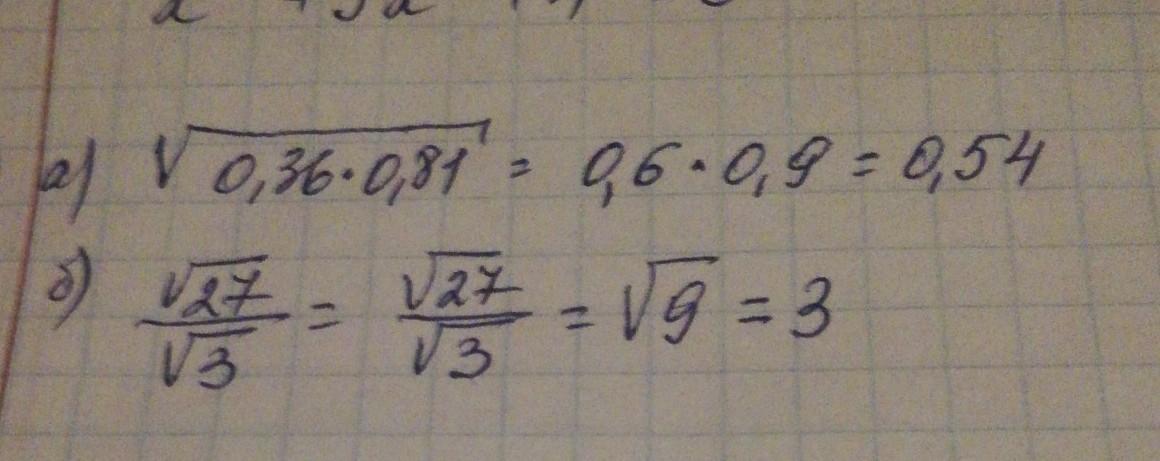 а) √0,36·0,81 = 0,6·0,9 = 0,54
б) √27/√3 = √27/√3 = √9 = 3